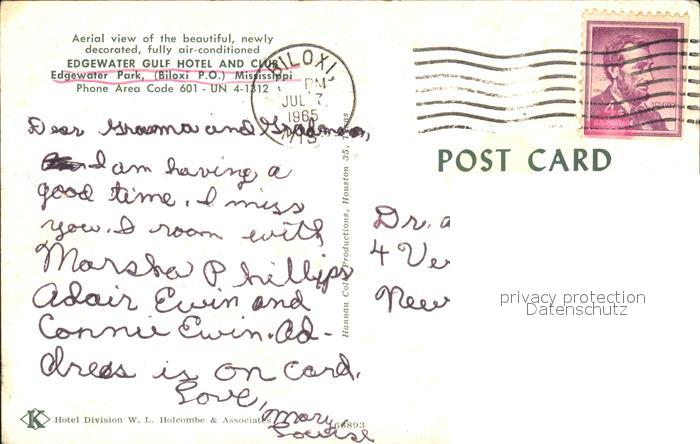 Aerial view of the beautiful, newly
decorated, fully air-conditioned
EDGEWATER GULF HOTEL AND CLUB
Edgewater Park, (Biloxi P.O.) Mississippi
Phone Area Code 601 - UN 4-1312
BILOXI,
PM
JUL 7
1965
MIS
POST CARD
Dear Grandma and
I am having a
good time. I miss
you. I room with
Marsha Phillips
Adair Ewin and
Connie Ewin. Ad-
dress is on card.
Love,
Mary
Louise
Dr.
4 Ve
New
privacy protection
Datenschutz
Productions, Houston 35,
K Hotel Division W. L. Holcombe & Associates
66893